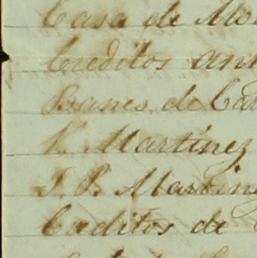 Casa de Mo
Creditos an
Banco de Ca
V. Martinez
J. P. Martine
Caditos de